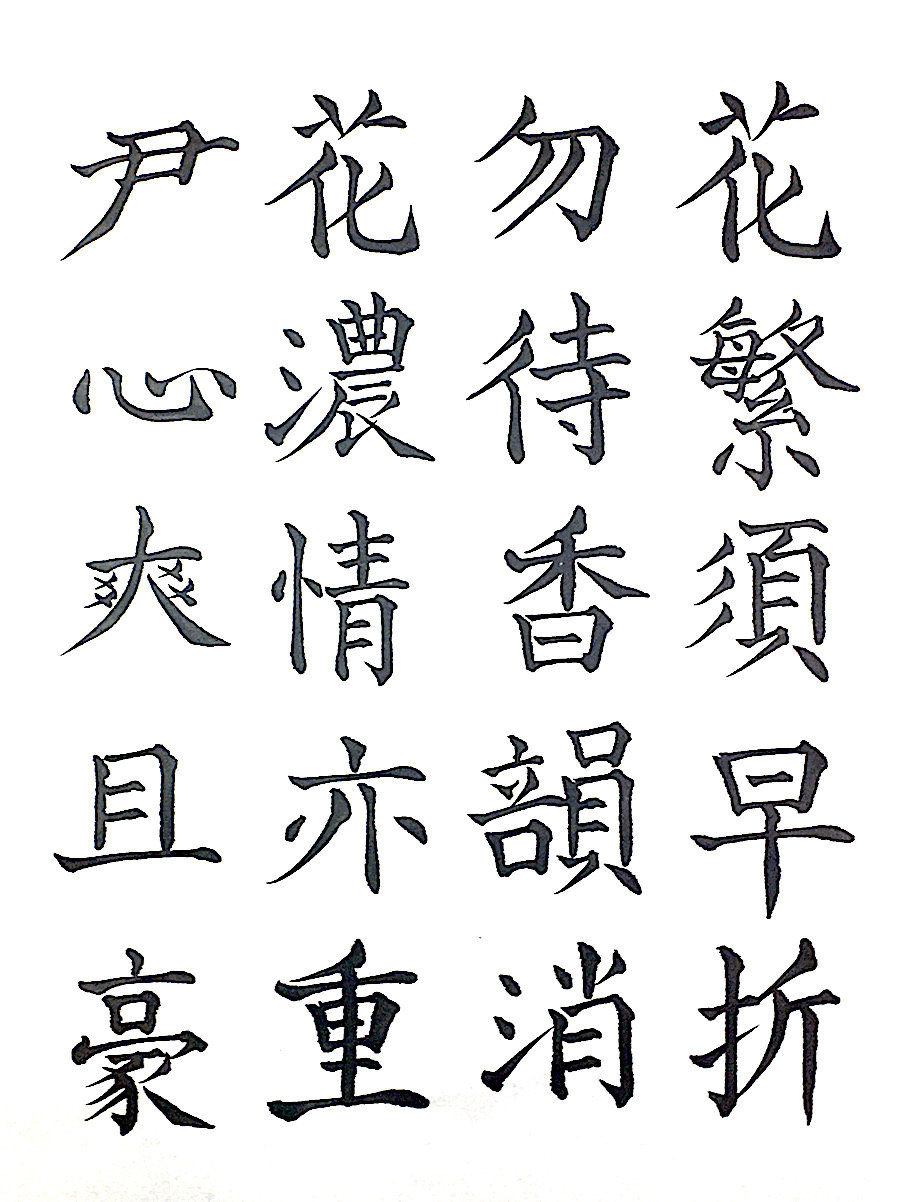 花繁須早折
勿待香韻消
花濃情亦重
尹心爽且豪